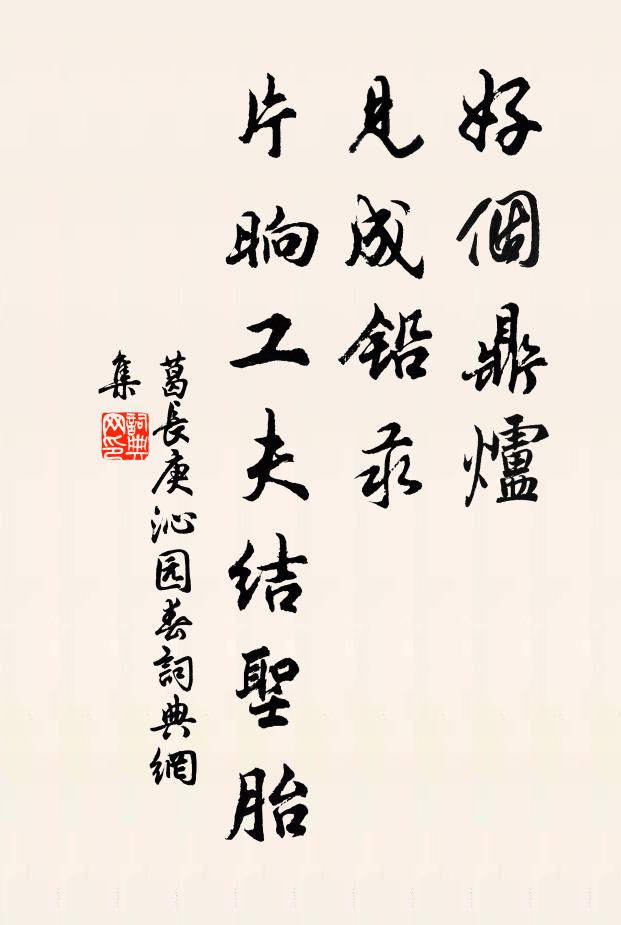 好個鼎爐
見成鉛汞
片晌工夫結聖胎
葛長庚沁园春詞典網
集
詞典
网印